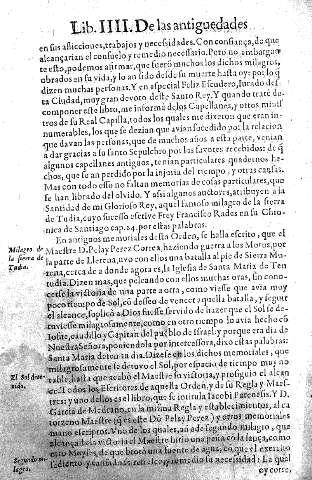 Lib. IIII. De las antiguedades
en sus aflicciones, trabajos y necesidades. Con confiança, de que
alcançarian el consuelo y remedio necessario. Pero no embargan-
te esto, podemos afirmar, que fueron muchos los dichos milagros,
obrados en su vida, y lo an sido desde su muerte hasta oy: por lo q̃
dizen muchas personas. Y en especial Feliz Escudero, Iurado des
ta Ciudad, muy gran devoto deste Santo Rey. Y quando traté de
componer este libro, me informè de los Capellanes, y otros minis
tros de su Real Capilla, todos los quales me dixeron que eran in-
numerables, los que se dezian que avian sucedido por la relacion
que davan las personas, que de muchos años a esta parte, venian
a dar gracias a su santo Sepulchro por los favores recebidos: de q̃
algunos capellanes antiguos, tenian particulares quadernos he-
chos, que se an perdido por la injuria del tiempo, y otras causas.
Mas con todo esso no faltan memorias de cosas particulares, que
se han librado del olvido. Y assi algunos autores, atribuyen a la
Santidad de mi Glorioso Rey, aquel famoso milagro de la sierra
de Tudia, cuyo sucesso escrive Frey Francisco Rades en su Chro-
nica de Santiago cap. 24. por estas palabras.
En antiguos memoriales desta Orden, se halla escrito, que el
Milagro de
la sierra de
Tudia.
Maestre D. Pelay Perez Correa, haziendo guerra a los Moros, por
la parte de Llerena, uvo con ellos una batalla al pie de Sierra Mo-
rena, cerca de a donde agora es, la Iglesia de Santa Maria de Ten
tudia. Dizen mas, que peleando con ellos muchas oras, sin cono-
cerse la vistoria de una parte a otra, como viesse que avia muy
poco tiempo de Sol, cõ desseo de vencer aquella batalla, y seguir
el alcance, suplicò a Dios fuesse servido de hazer que el Sol se de-
tuviesse milagrosamente, como en otro tiempo lo avia hecho cõ
Iosue, caudillo y Capitan del pueblo de Israel; y porque era dia de
Nuestra Señora, poniendola por intercessora, dixo estas palabras:
Santa Maria detien tu dia. Dizese en los dichos memoriales, que
milagrosamente se detuvo el Sol, por espacio de tiempo muy no
El Sol dete-
nido.
table, hasta que acabò el Maestre su vitoria, y prosiguio el alcan
ce. Todos los Escritores de aquella Orden, y de su Regla y Maes-
tres; y uno dellos es el libro, que se intitula Iacobi Parcensis. Y D.
Garcia de Medrano, en la misma Regla y establecimientos, al ca
torzeno Maestre (q̃ es este Dõ Pelay Perez) y otros memoriales
manuescriptos. Uno de los quales, añade segundo milagro, que
Segundo mi-
lagro.
alcançada la vitoria el Maestre hirio una peña cõ la lança, como
otro Moyses, de que brotò una fuente de agua, cõ que el exercito
sediento y cansado
oy corre,